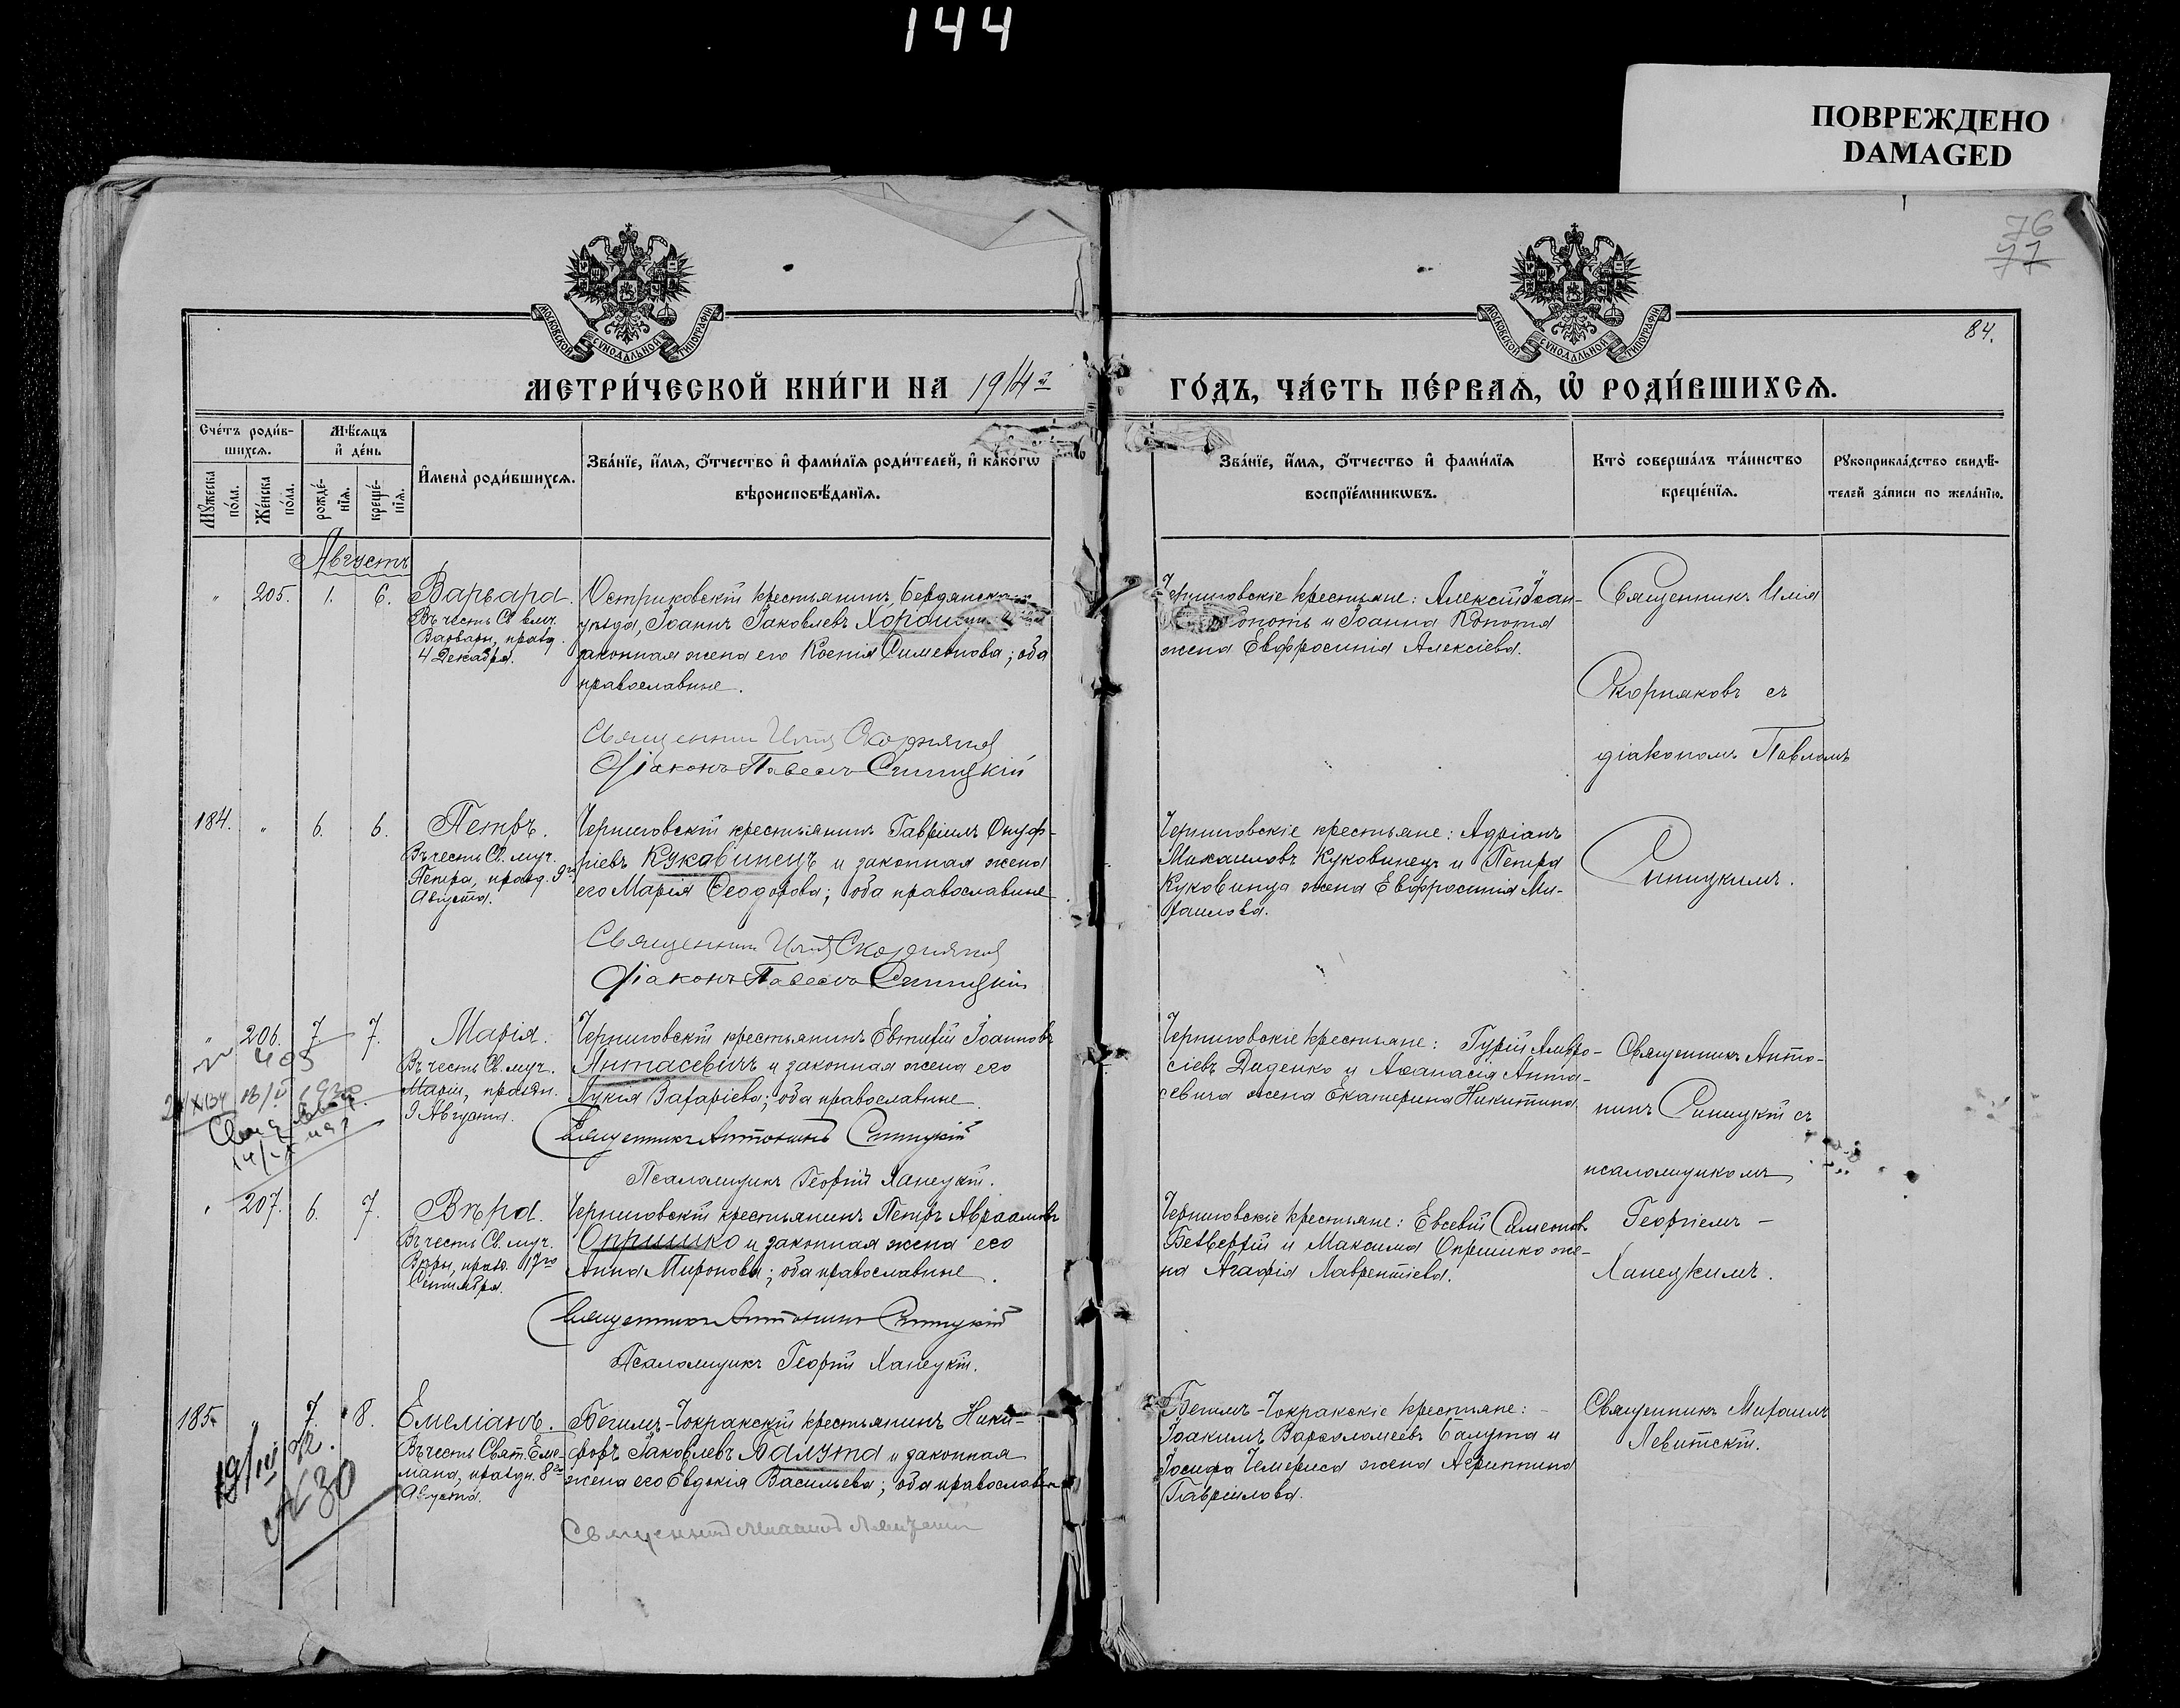 144
ПОВРЕЖДЕНО
DAMAGED
76
77
84.
МОСКОВСКОЙ СУНОДАЛЬНОЙ ТИПОГРАФІИ
МОСКОВСКОЙ СУНОДАЛЬНОЙ ТИПОГРАФІИ
МЕТРИ́ЧЕСКОЙ КНИ́ГИ НА 1914 г
ГО́ДЪ, ЧА́СТЬ ПЕ́РВАѦ, Ѽ РОДИ́ВШИХСѦ.
Сче́тъ роди́в-
шихсѧ.
Мѣ́сѧцъ
и҆ де́нь
Мꙋ́жеска
по́ла.
Же́нска
по́ла.
рожде́-
нїѧ.
креще́-
нїѧ.
И҆мена̀ роди́вшихсѧ.
Зва́нїе, и҆́мѧ, ѻ҆́тчество и҆ фами́лїѧ роди́телей, и҆ како́гѡ
вѣроисповѣ́данїѧ.
Зва́нїе, и҆́мѧ, ѻ҆́тчество и҆ фами́лїѧ
воспрїе́мникѡвъ.
Кто̀ соверша́лъ та́инство
креще́нїѧ.
Рꙋкоприкла́дство свидѣ́-
телей за́писи по жела́нїю.
Августъ
" 205. 1. 6. Варвара.
Въ честь Св. влмч.
Варвары, празд.
4 Декабря.
Остриковскій крестьянинъ, Бердянскаго
уѣзда, Іоаннъ Іаковлевъ
законная жена его Ксенія Симеонова; оба
православные.
Священникъ Илія Скорняковъ
Діаконъ Павелъ Синицкій
Черниговскіе крестьяне: Алексій Іоан-
Кононъ и Іоанна Конона
жена Евфросинія Алексіева.
Священникъ Илія
Скорняковъ съ
діакономъ Павломъ
Синицкимъ.
184. " 6. 6. Петръ.
Въ честь Св. муч.
Петра, празд. 9го
Августа.
Черниговскій крестьянинъ Гавріилъ Онуф-
ріевъ Куковинецъ и законная жена
его Марія Ѳеодорова; оба православные
Священникъ Илія Скорняковъ
Діаконъ Павелъ Синицкій
Черниговскіе крестьяне: Адріанъ
Михаиловъ Куковинецъ и Петра
Куковинца жена Евфросинія Ми-
хаилова.
" 206. 7. 7. Марія.
Въ честь Св. муч.
Маріи, праздн.
9 Августа.
405
Черниговскій крестьянинъ Евтихій Іоанновъ
Антасевичъ и законная жена его
Лукія Захаріева; оба православные
Священникъ Антонинъ Синицкій
Псаломщикъ Георгій Ханецкій.
Черниговскіе крестьяне: Гурій Амвро-
сіевъ Диденко и Аѳанасія Анта-
севича жена Екатерина Никитина
Священникъ Анто-
нинъ Синицкій съ
псаломщикомъ
Георгіемъ -
Ханецкимъ.
" 207. 6. 7. Вѣра.
Въ честь Св. муч.
Вѣры, празд. 17го
Сентября.
Черниговскій крестьянинъ Петръ Авраамовъ
Опришко и законная жена его
Анна Миронова; оба православные.
Священникъ Антонинъ Синицкій
Псаломщикъ Георгій Ханецкій.
Черниговскіе крестьяне: Евсевій Симеоновъ
и Максима Опришко же-
на Агафія Лаврентіева.
185. " 7. 8. Емеліанъ.
Въ честь Свят. Еме-
ліана, праздн. 8го
Августа.
19/III
№ 30
Бегимъ-Чокракскій крестьянинъ Ники-
форъ Іаковлевъ Балута и законная
жена его Евдокія Васильева; оба православн
Бегимъ-Чокракскіе крестьяне: -
Іоакимъ Варѳоломеевъ Балута и
Іосифа Чемериса жена Агриппина
Гавріилова.
Священникъ Михаилъ
Левитскій.